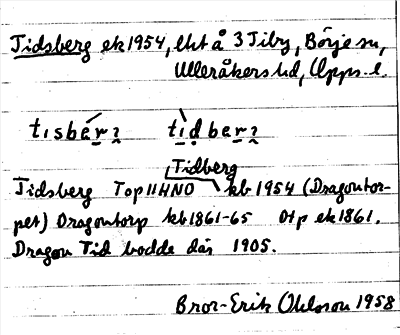 Tidsberg ek 1954, lht å 3 Tiby, Börje sn,
Ulleråkers hd, Upps. l.
tɩsbérʔ tɩ̀dberʔ
Tidberg
Tidsberg Top 11HNO kb 1954 (Dragontor-
pet) Dragontorp kb 1861-65 Otp ek 1861.
Dragon Tid bodde där 1905.
Bror-Erik Ohlsson 1958